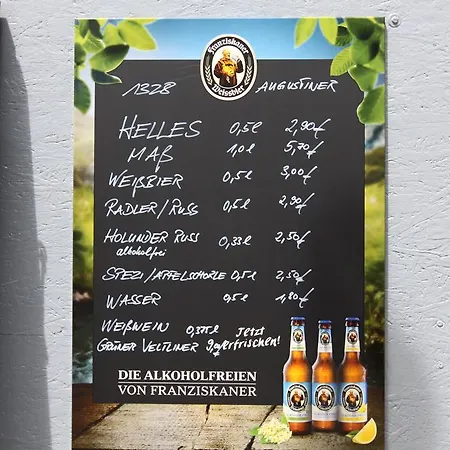 Franziskaner
Weissbier
1328 AUGUSTINER
HELLES 0,5l 2,90€
MAß 1,0l 5,70€
WEIßBIER 0,5l 3,00€
RADLER/RUSS 0,5l 2,90€
HOLUNDER RUSS 0,33l 2,50€
alkoholfrei
SPEZI/APFELSCHORLE 0,5l 2,50€
WASSER 0,5l 1,80€
WEIßWEIN 0,375l Jetzt
GRÜNER VELTLINER erfrischen!
DIE ALKOHOLFREIEN
VON FRANZISKANER